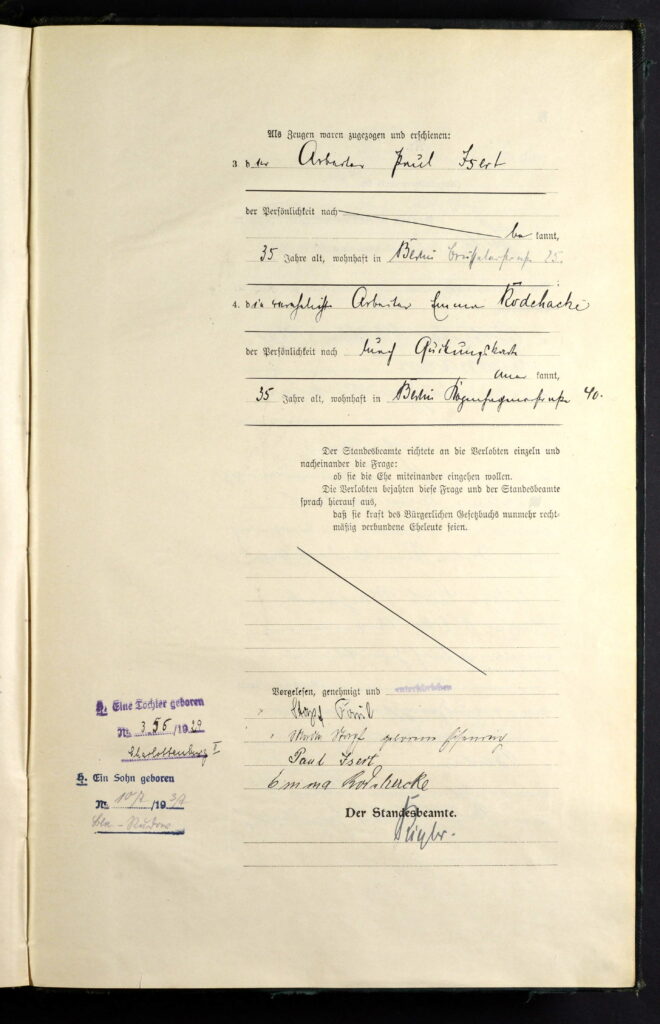 Als Zeugen waren zugezogen und erschienen:
3 der Arbeiter Paul Isert
der Persönlichkeit nach
be kannt,
35 Jahre alt, wohnhaft in Berlin Brüsselerstraße 25.
4. die verehelichte Arbeiter Emma Rodehacke
der Persönlichkeit nach durch Quittungskarte
aner kannt,
35 Jahre alt, wohnhaft in Berlin Kopenhagenerstraße 40.
Der Standesbeamte richtete an die Verlobten einzeln und
nacheinander die Frage:
ob sie die Ehe miteinander eingehen wollen.
Die Verlobten bejahten diese Frage und der Standesbeamte
sprach hierauf aus,
daß sie kraft des Bürgerlichen Gesetzbuchs nunmehr recht-
mäßig verbundene Eheleute seien.
Vorgelesen, genehmigt und unterschrieben
Paul
geborene
Paul Isert.
Emma Rodehacke
Der Standesbeamte.
Eine Tochter geboren
Nr. 356/1929
Charlottenburg I
Ein Sohn geboren
Nr. /1939
Bln-Rudow